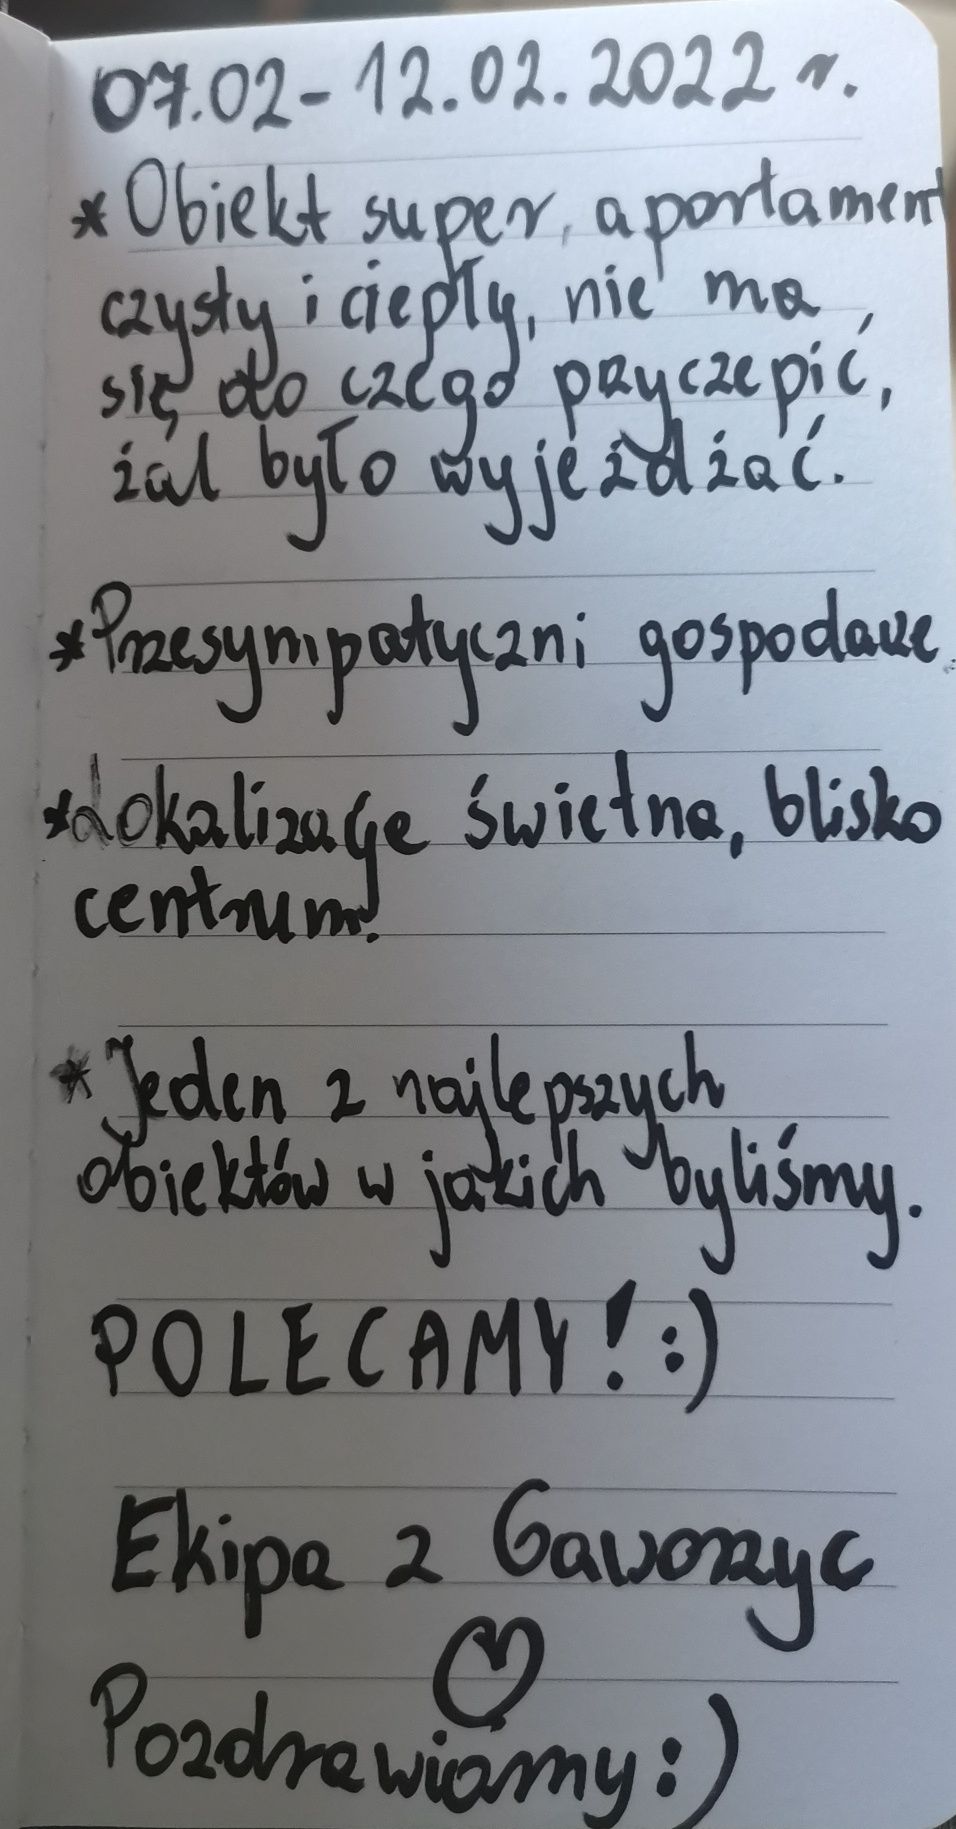 07.02-12.02.2022 r.
* Obiekt super, apartament
czysty i ciepły, nie ma
się do czego przyczepić,
żal było wyjeżdżać.
* Przesympatyczni gospodarze.
* Lokalizacje świetna, blisko
centrum.
* Jeden z najlepszych
obiektów w jakich byliśmy.
POLECAMY! :)
Ekipa z Gaworzyc
Pozdrawiamy :)